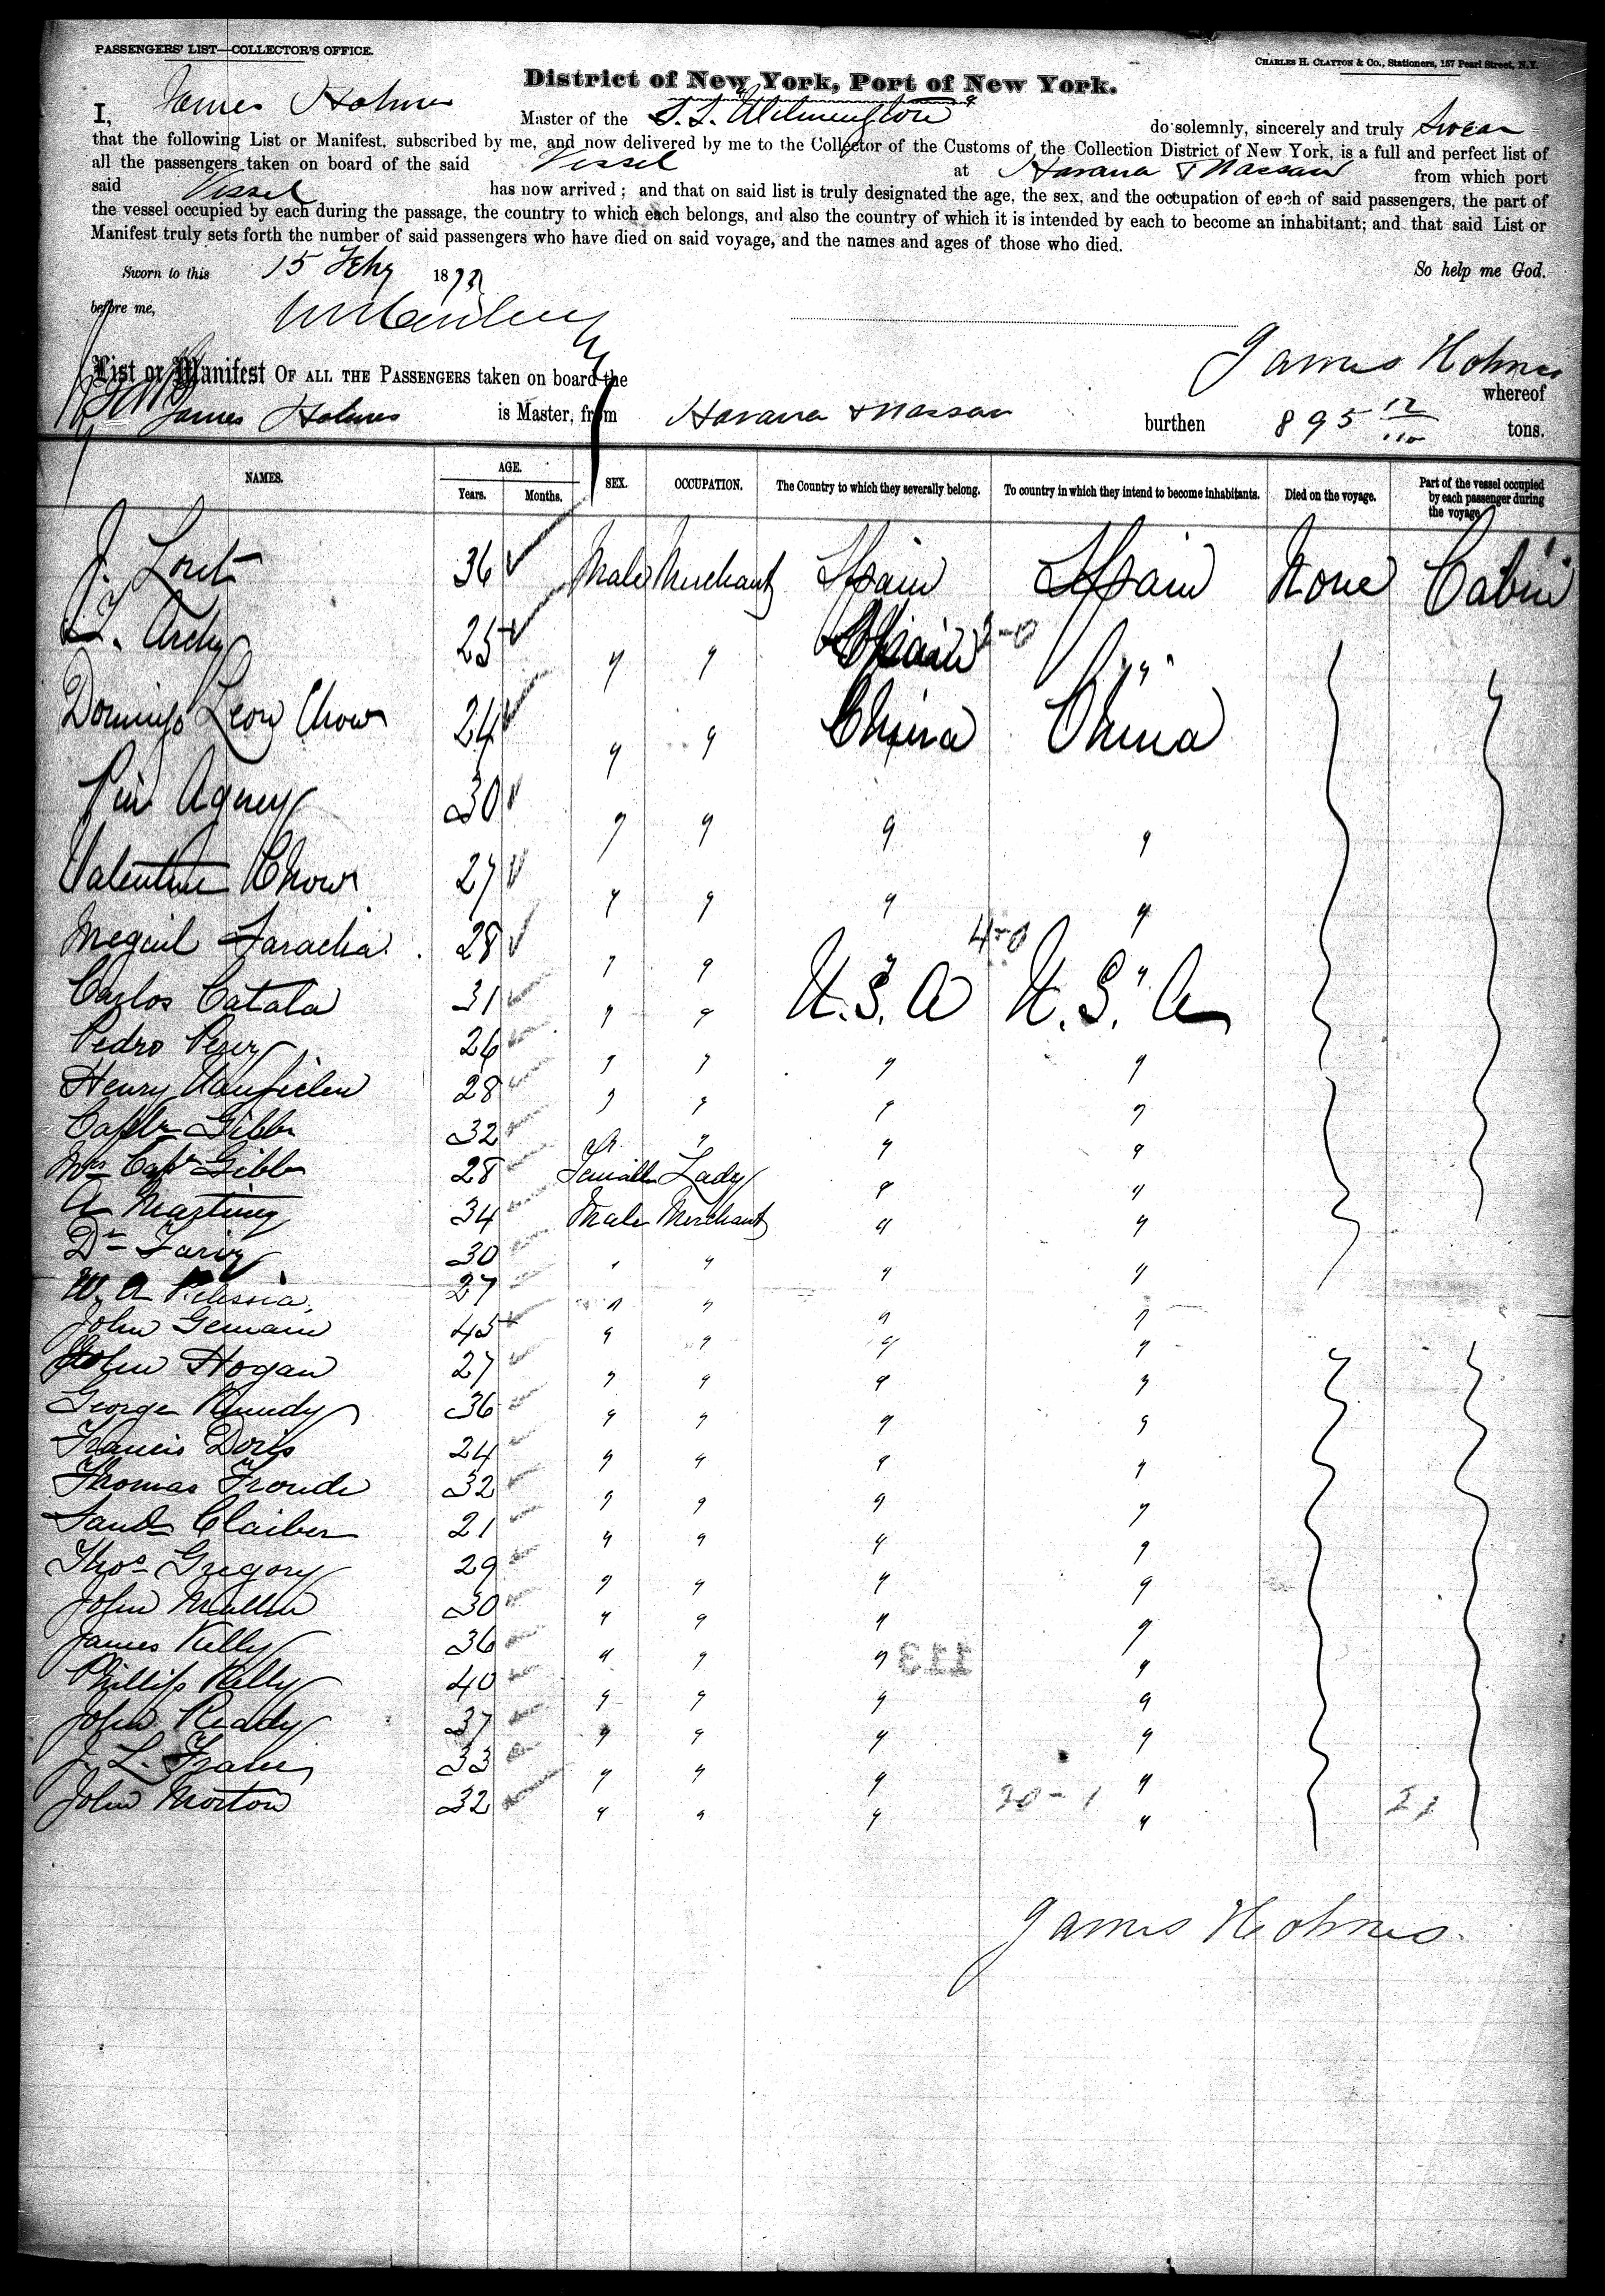 PASSENGERS' LIST—COLLECTOR'S OFFICE.
CHARLES H. CLAYTON & Co., Stationers, 157 Pearl Street, N.Y.
District of New York, Port of New York.
I, James Holmes Master of the S.S. Wilmington do solemnly, sincerely and truly Swear
that the following List or Manifest, subscribed by me, and now delivered by me to the Collector of the Customs of the Collection District of New York, is a full and perfect list of
all the passengers taken on board of the said Vessel at Havana & Nassau from which port
said Vessel has now arrived; and that on said list is truly designated the age, the sex, and the occupation of each of said passengers, the part of
the vessel occupied by each during the passage, the country to which each belongs, and also the country of which it is intended by each to become an inhabitant; and that said List or
Manifest truly sets forth the number of said passengers who have died on said voyage, and the names and ages of those who died.
Sworn to this 15 Feby 187 So help me God.
before me,
James Holmes
List or Manifest OF ALL THE PASSENGERS taken on board the whereof
James Holmes is Master, from Havana & Nassau burthen 895 12/110 tons.
NAMES. AGE. Years. Months. SEX. OCCUPATION. The Country to which they severally belong. To country in which they intend to become inhabitants. Died on the voyage. Part of the vessel occupied by each passenger during the voyage.
J. Loret 36 Male Merchant Spain Spain None Cabin
Archy 25 " " "
Domingo Leon Chow 24 " " China China
Agney 30 " " " "
Valentine Chow 27 " " " "
Meguil 28 " " " "
Carlos Catala 31 " " U.S.A U.S.A
Pedro Perez 26 " " " "
Henry 28 " " " "
Captn Gibbs 32 " " " "
Mrs Capt Gibbs 28 Female Lady " "
A Martinez 34 Male Merchant " "
Dr 30 " " " "
W. A 27 " " " "
John Gemain 45 " " " "
John Hogan 27 " " " "
George 36 " " " "
Francis Doris 24 " " " "
Thomas Froude 32 " " " "
Claiber 21 " " " "
Thos Gregory 29 " " " "
John Mullin 30 " " " "
James Kelly 36 " " " "
113
Phillip Kelly 40 " " " "
John Ready 37 " " " "
J. L. 33 " " " "
John Morton 32 " " " "
30-1
James Holmes.